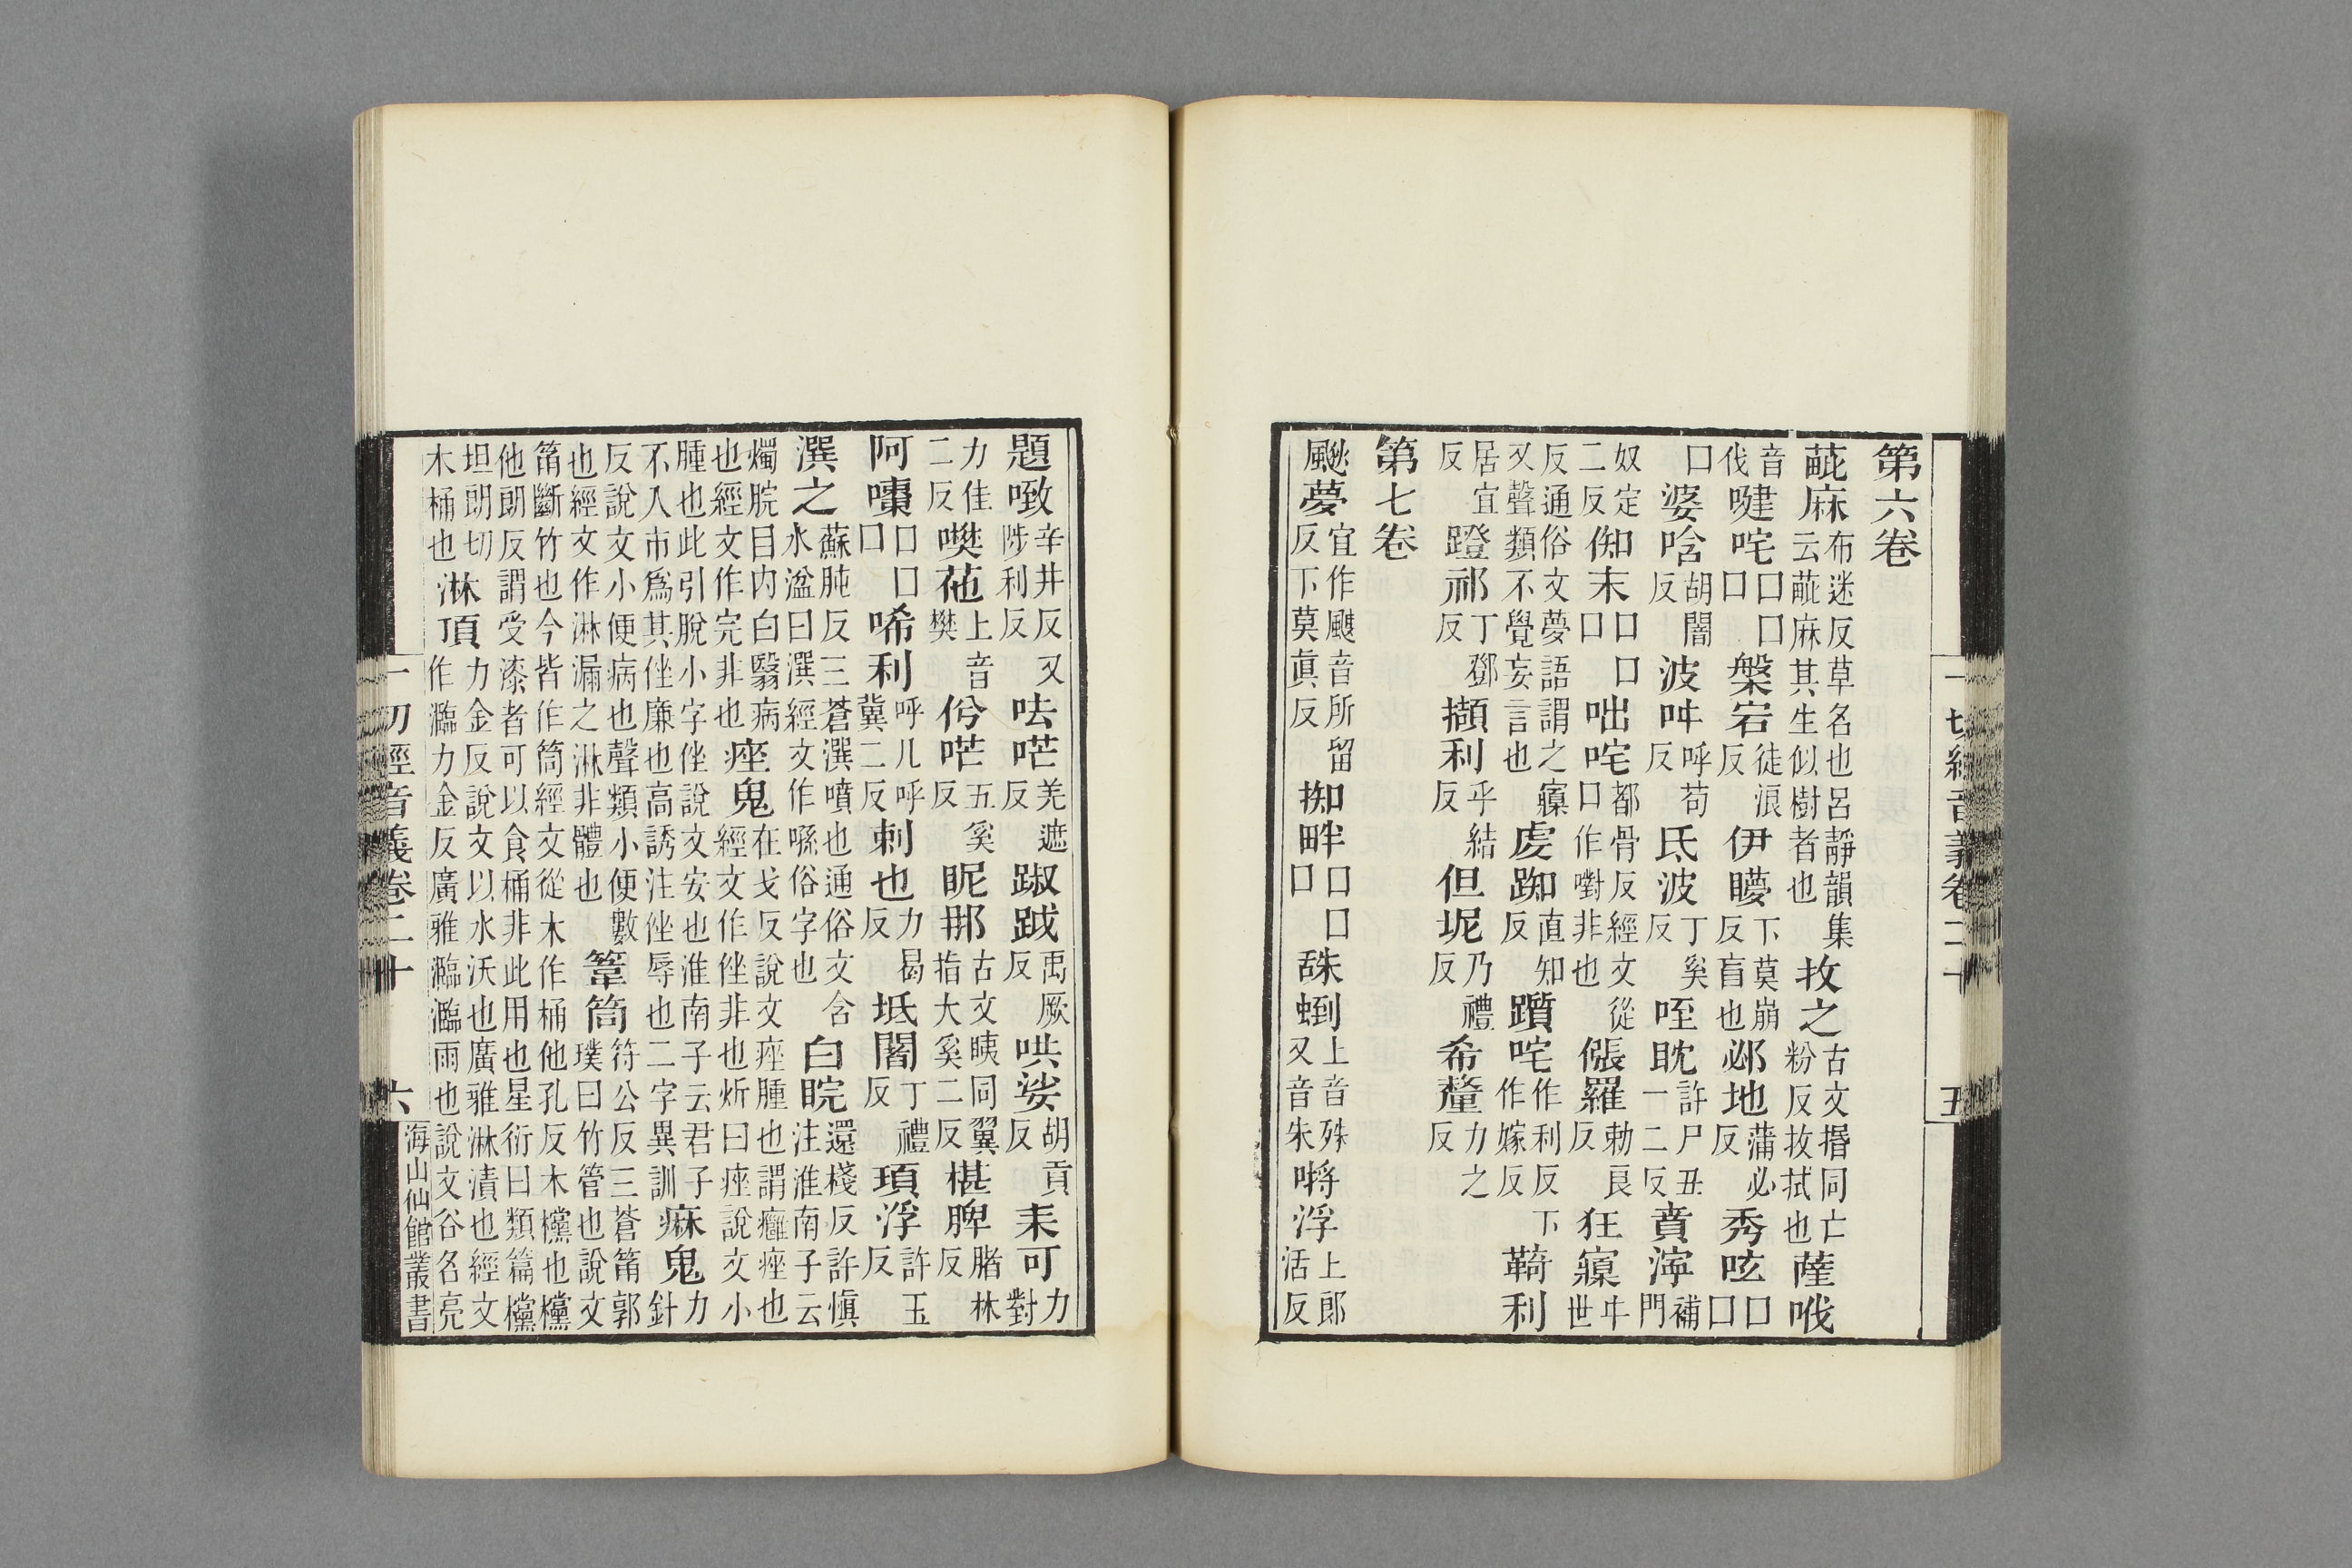 第六卷
萞麻布迷反草名也呂靜韻集云萞麻其生似樹者也抆之古文㨉同亡粉反抆拭也薩㖊
音伐㖵咤口口口槃宕徒浪反伊矆下莫崩反盲也邲地蒲必反秀呟口口
口婆唅胡闇反波吽呼苟反氐波丁奚反咥眈許尸丑一二反賁濘補門
奴定二反㑛末口口口咄咤都骨反經文從口作嚉非也倀羅勅良反狂寱牛世
反通俗文夢語謂之寱又聲類不覺妄言也虔踟直知反躓咤作利反下作嫁反鞫利
居宜反蹬祁丁鄧反擷利乎結反但坭乃禮反希釐力之反
第七卷
颰夢宜作颼音所留反下莫眞反㨖畔口口口䑛蛚上音殊又音朱㗘浮上郎活反
題㘉辛井反又陟利反呿㟐羌遮反踧跋禹厥反哄娑胡貢反耒可力對
力佳二反噗苆上音樊㕭㟐五奚反眤那古文䀢同翼指大奚二反椹脾腊林反
阿嚊口口口唏利呼几呼冀二反剌也力曷反坻闍丁禮反頊浮許玉反
潠之蘇肫反三蒼潠噴也通俗文含水湓曰潠經文作㗵俗字也白睆還棧反許愼注淮南子云
燭睆目内白翳病也經文作完非也痤鬼在戈反說文痤腫也謂癰痤也經文作侳非也炘曰痤說文小
腫也此引脫小字侳說文安也淮南子云君子不入市爲其侳廉也高誘注侳辱也二字異訓痳鬼力針
反說文小便病也聲類小便數也經文作淋漏之淋非體也箽筩符公反三蒼筩郭璞曰竹管也說文
筩斷竹也今皆作筒經文從木作桶他孔反木欓也欓他朗反謂受漆者可以食桶非此用也星衍曰類篇欓
坦朗切木桶也淋頂力金反說文以水沃也廣雅淋漬也經文作灆力金反廣雅灆灆雨也說文谷名亮
一切經音義卷二十
六
海山仙館叢書